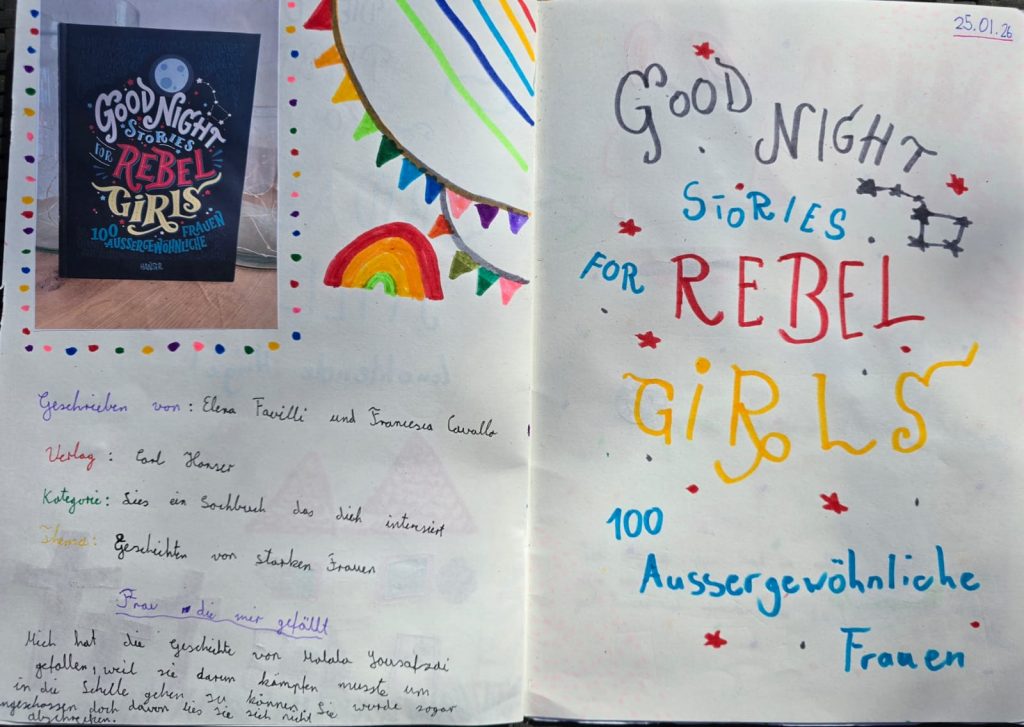 GOOD NIGHT
STORIES
FOR REBEL
GIRLS
100 FRAUEN
AUSSERGEWÖHNLICHE
HANSER
Geschrieben von: Elena Favilli und Francesca Cavallo
Verlag: Carl Hanser
Kategorie: Lies ein Sachbuch das dich interssiert
Thema: Geschichten von starken Frauen
Frau die mir gefällt
Mich hat die Geschichte von Malala Yousafzai
gefallen, weil sie darum kämpfen musste um
in die Schulle gehen zu können. Sie wurde sogar
angeschossen doch davon lies sie sich nicht
abschrecken.
25.01.26
GOOD
NIGHT
STORIES
FOR REBEL
GIRLS
100
Aussergewöhnliche
Frauen